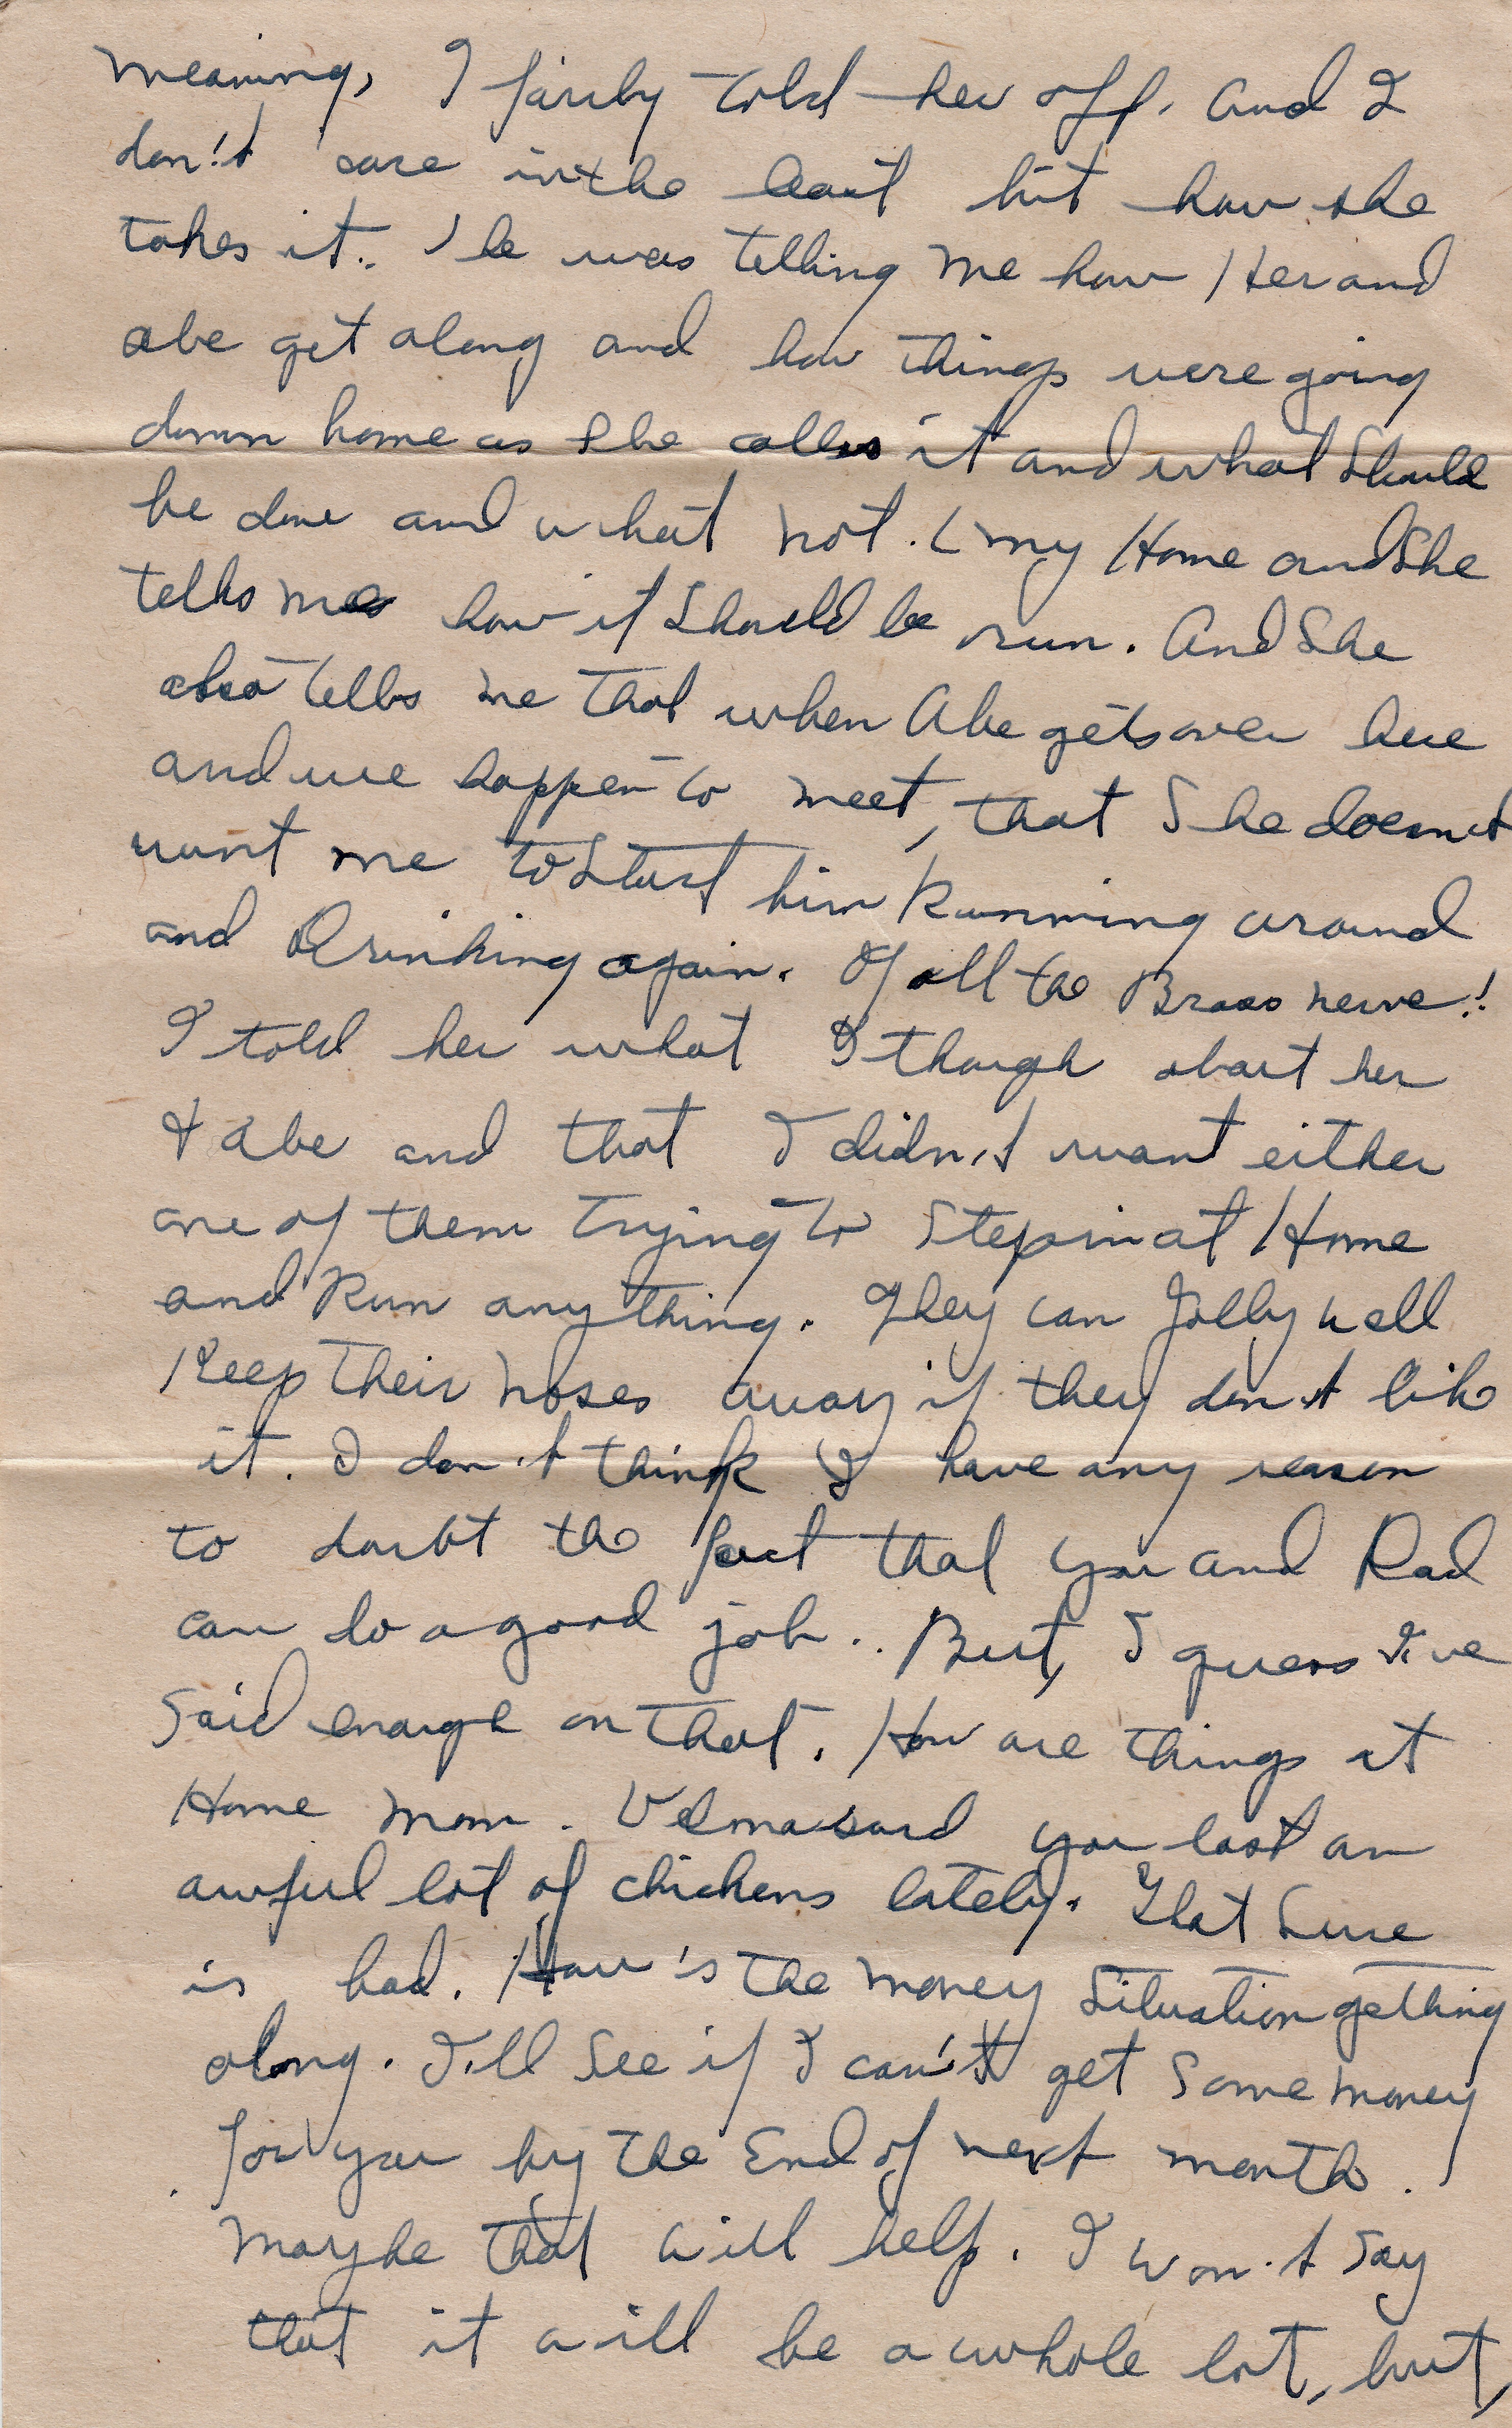 meaning, I fairly told her off. And I
don't care in the least bit how she
takes it. She was telling me how Her and
abe get along and how things were going
down home as She calls it and what Should
be done and what not. (my Home and She
tells me how it Should be run. And She
also tells me that when Abe gets over here
and we happen to meet, that She doesn't
want me to Start him Running around
and Drinking again. Of all the Brass nerve!!
I told her what I though about her
& Abe and that I didn't want either
one of them trying to Step in at Home
and Run anything. They can Jolly well
Keep their noses away if they don't like
it. I don't think I have any reason
to doubt the fact that you and Rad
can do a good job.. But, I guess I've
Said enough on that. How are things at
Home mom. Velma said you lost an
awful lot of chickens lately. That Sure
is bad. How's the money Situation getting
along. I'll See if I can't get Some money
for you by the End of next month.
Maybe that will help. I won't Say
that it will be a whole lot, but,